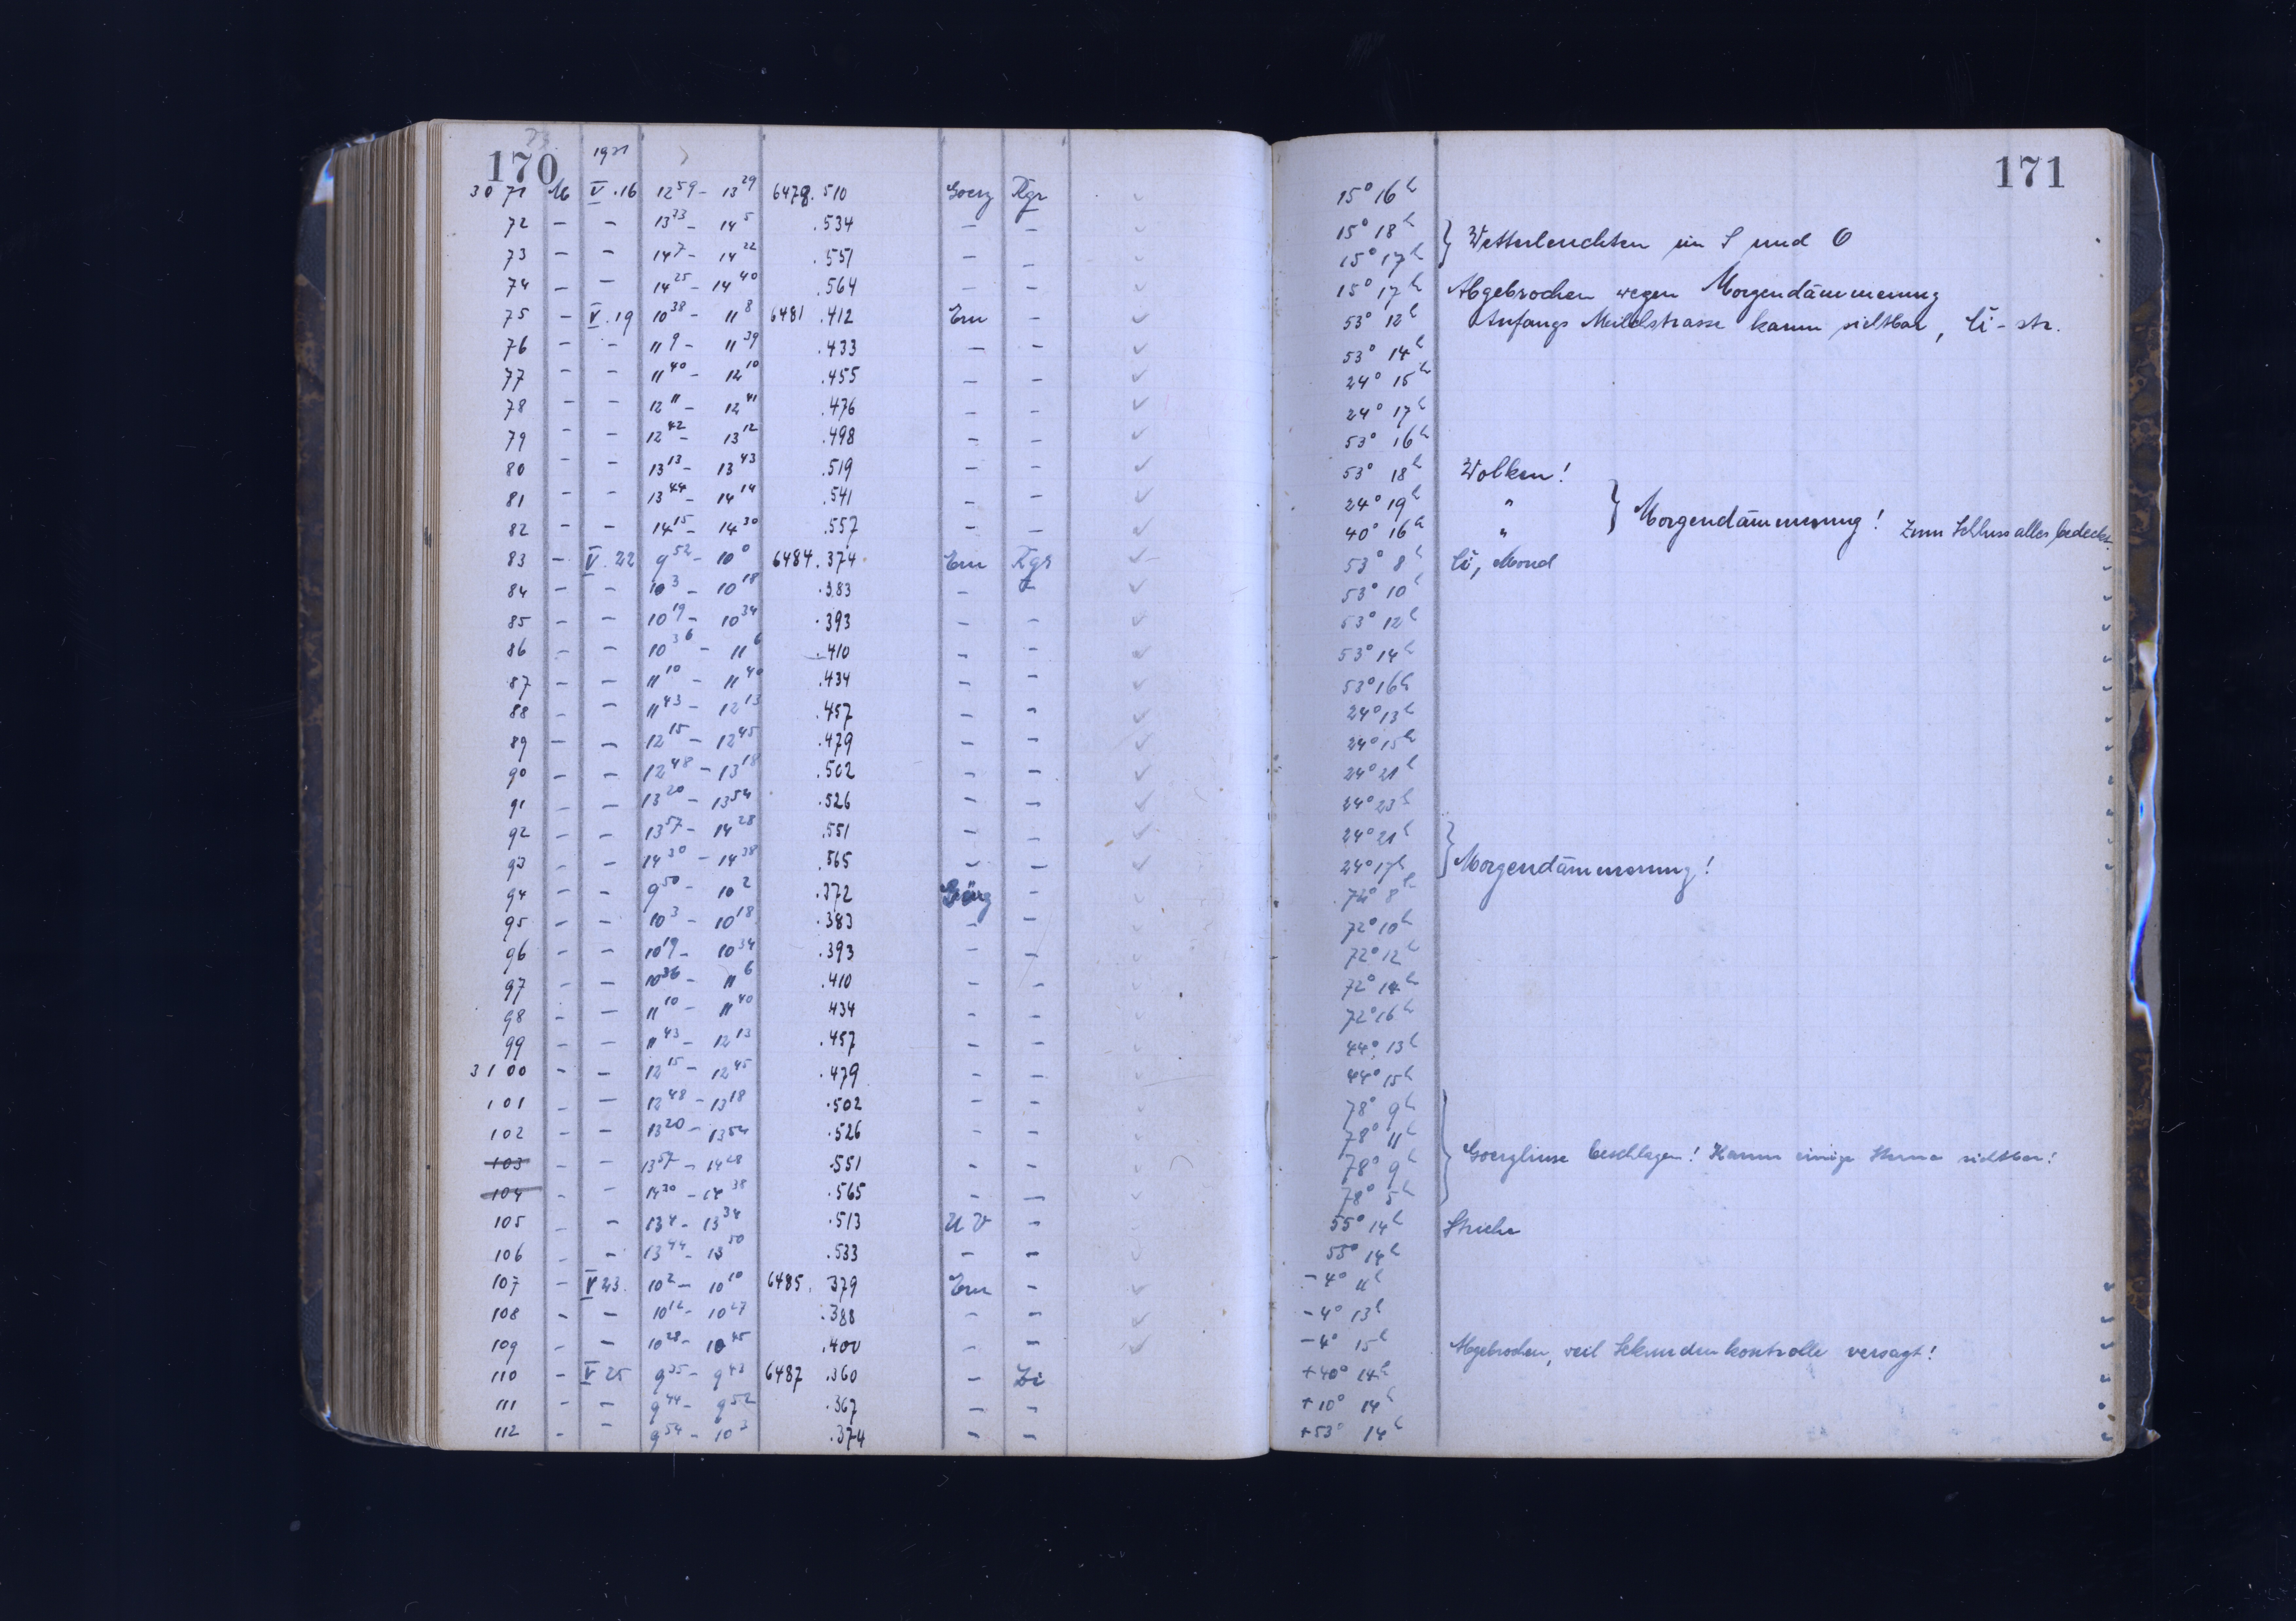 170 1931 171
3071 M V.16 12 59 - 13 29 6478.510 Goerz Kgr 15° 16h
72 — — 13 33 - 14 5 .534 — — 15° 18h } Wetterleuchten im S und O
73 — — 14 7 - 14 22 .551 — — 15° 17h
74 — — 14 25 - 14 40 .564 — — 15° 17h Abgebrochen wegen Morgendämmerung
75 — V.19 10 38 - 11 8 6481 .412 Ern — 53° 12h Anfangs Milchstrasse kaum sichtbar, Ci-str.
76 — — 11 9 - 11 39 .433 — — 53° 14h
77 — — 11 40 - 12 10 .455 — — 24° 15h
78 — — 12 11 - 12 41 .476 — — 24° 17h
79 — — 12 42 - 13 12 .498 — — 53° 16h
80 — — 13 13 - 13 43 .519 — — 53° 18h Wolken!
81 — — 13 44 - 14 14 .541 — — 24° 19h " } Morgendämmerung! Zum Schluss alles bedeckt.
82 — — 14 15 - 14 30 .557 — — 40° 16h "
83 — V.22 9 52 - 10 0 6484.374 Ern Kgr 53° 8h Ci, Mond
84 — — 10 3 - 10 18 .383 — — 53° 10h
85 — — 10 19 - 10 34 .393 — — 53° 12h
86 — — 10 36 - 11 6 .410 — — 53° 14h
87 — — 11 10 - 11 40 .434 — — 53° 16h
88 — — 11 43 - 12 13 .457 — — 24° 13h
89 — — 12 15 - 12 45 .479 — — 24° 15h
90 — — 12 48 - 13 18 .502 — — 24° 21h
91 — — 13 20 - 13 54 .526 — — 24° 23h
92 — — 13 57 - 14 28 .551 — — 24° 21h } Morgendämmerung!
93 — — 14 30 - 14 38 .565 — — 24° 17h
94 — — 9 50 - 10 2 .372 Görz — 72° 8h
95 — — 10 3 - 10 18 .383 — — 72° 10h
96 — — 10 19 - 10 34 .393 — — 72° 12h
97 — — 10 36 - 11 6 .410 — — 72° 14h
98 — — 11 10 - 11 40 434 — — 72° 16h
99 — — 11 43 - 12 13 .457 — — 44° 13h
3100 — — 12 15 - 12 45 .479 — — 44° 15h
101 — — 12 48 - 13 18 .502 — — 78° 9h
102 — — 13 20 - 13 54 .526 — — 78° 11h
103 — — 13 57 - 14 28 .551 — — 78° 9h } Goerzlinse beschlagen! Kaum einige Sterne sichtbar!
104 — — 14 30 - 14 38 .565 — — 78° 5h
105 — — 13 4 - 13 34 .513 UV — 55° 14h Striche
106 — — 13 44 - 13 50 .533 — — 55° 14h
107 — V 23. 10 2 - 10 10 6485. 379 Ern — -4° 11h
108 — — 10 12 - 10 27 .388 — — -4° 13h
109 — — 10 28 - 10 45 .400 — — -4° 15h Abgebrochen, weil Sekundenkontrolle versagt!
110 — V 25 9 35 - 9 43 6487 .360 — Zi +40° 14h
111 — — 9 44 - 9 52 .367 — — +10° 14h
112 — — 9 54 - 10 3 .374 — — +53° 14h